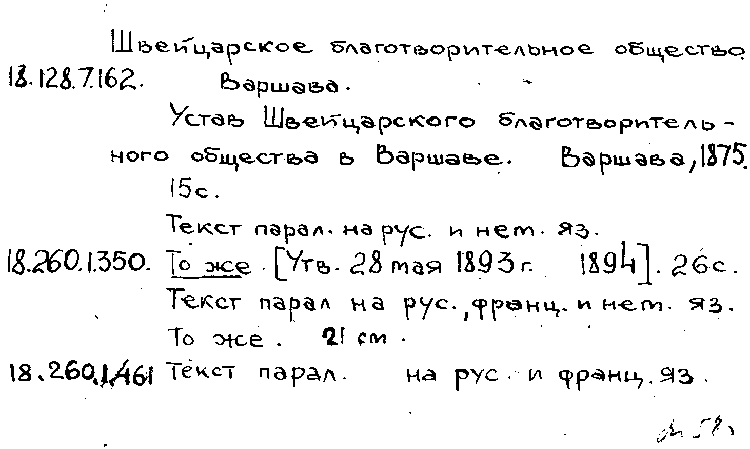 Швейцарское благотворительное общество.
18.128.7.162. Варшава.
Устав Швейцарского благотворитель-
ного общества в Варшаве. Варшава, 1875.
15с.
Текст парал. на рус. и нем. яз.
18.260.1.350. То же. [Утв. 28 мая 1893 г. 1894]. 26с.
Текст парал на рус., франц. и нем. яз.
То же. 21 см.
18.260.1.461 Текст парал. на рус. и франц. яз.